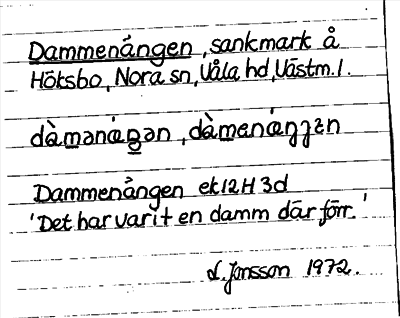 Dammenängen, sankmark å
Hötsbo, Nora sn, Våla hd, Västm. l.
dàmənáŋən, dàmenáŋʒɛn
Dammenängen ek 12H 3d
'Det har varit en damm där förr.'
L. Jonsson 1972.